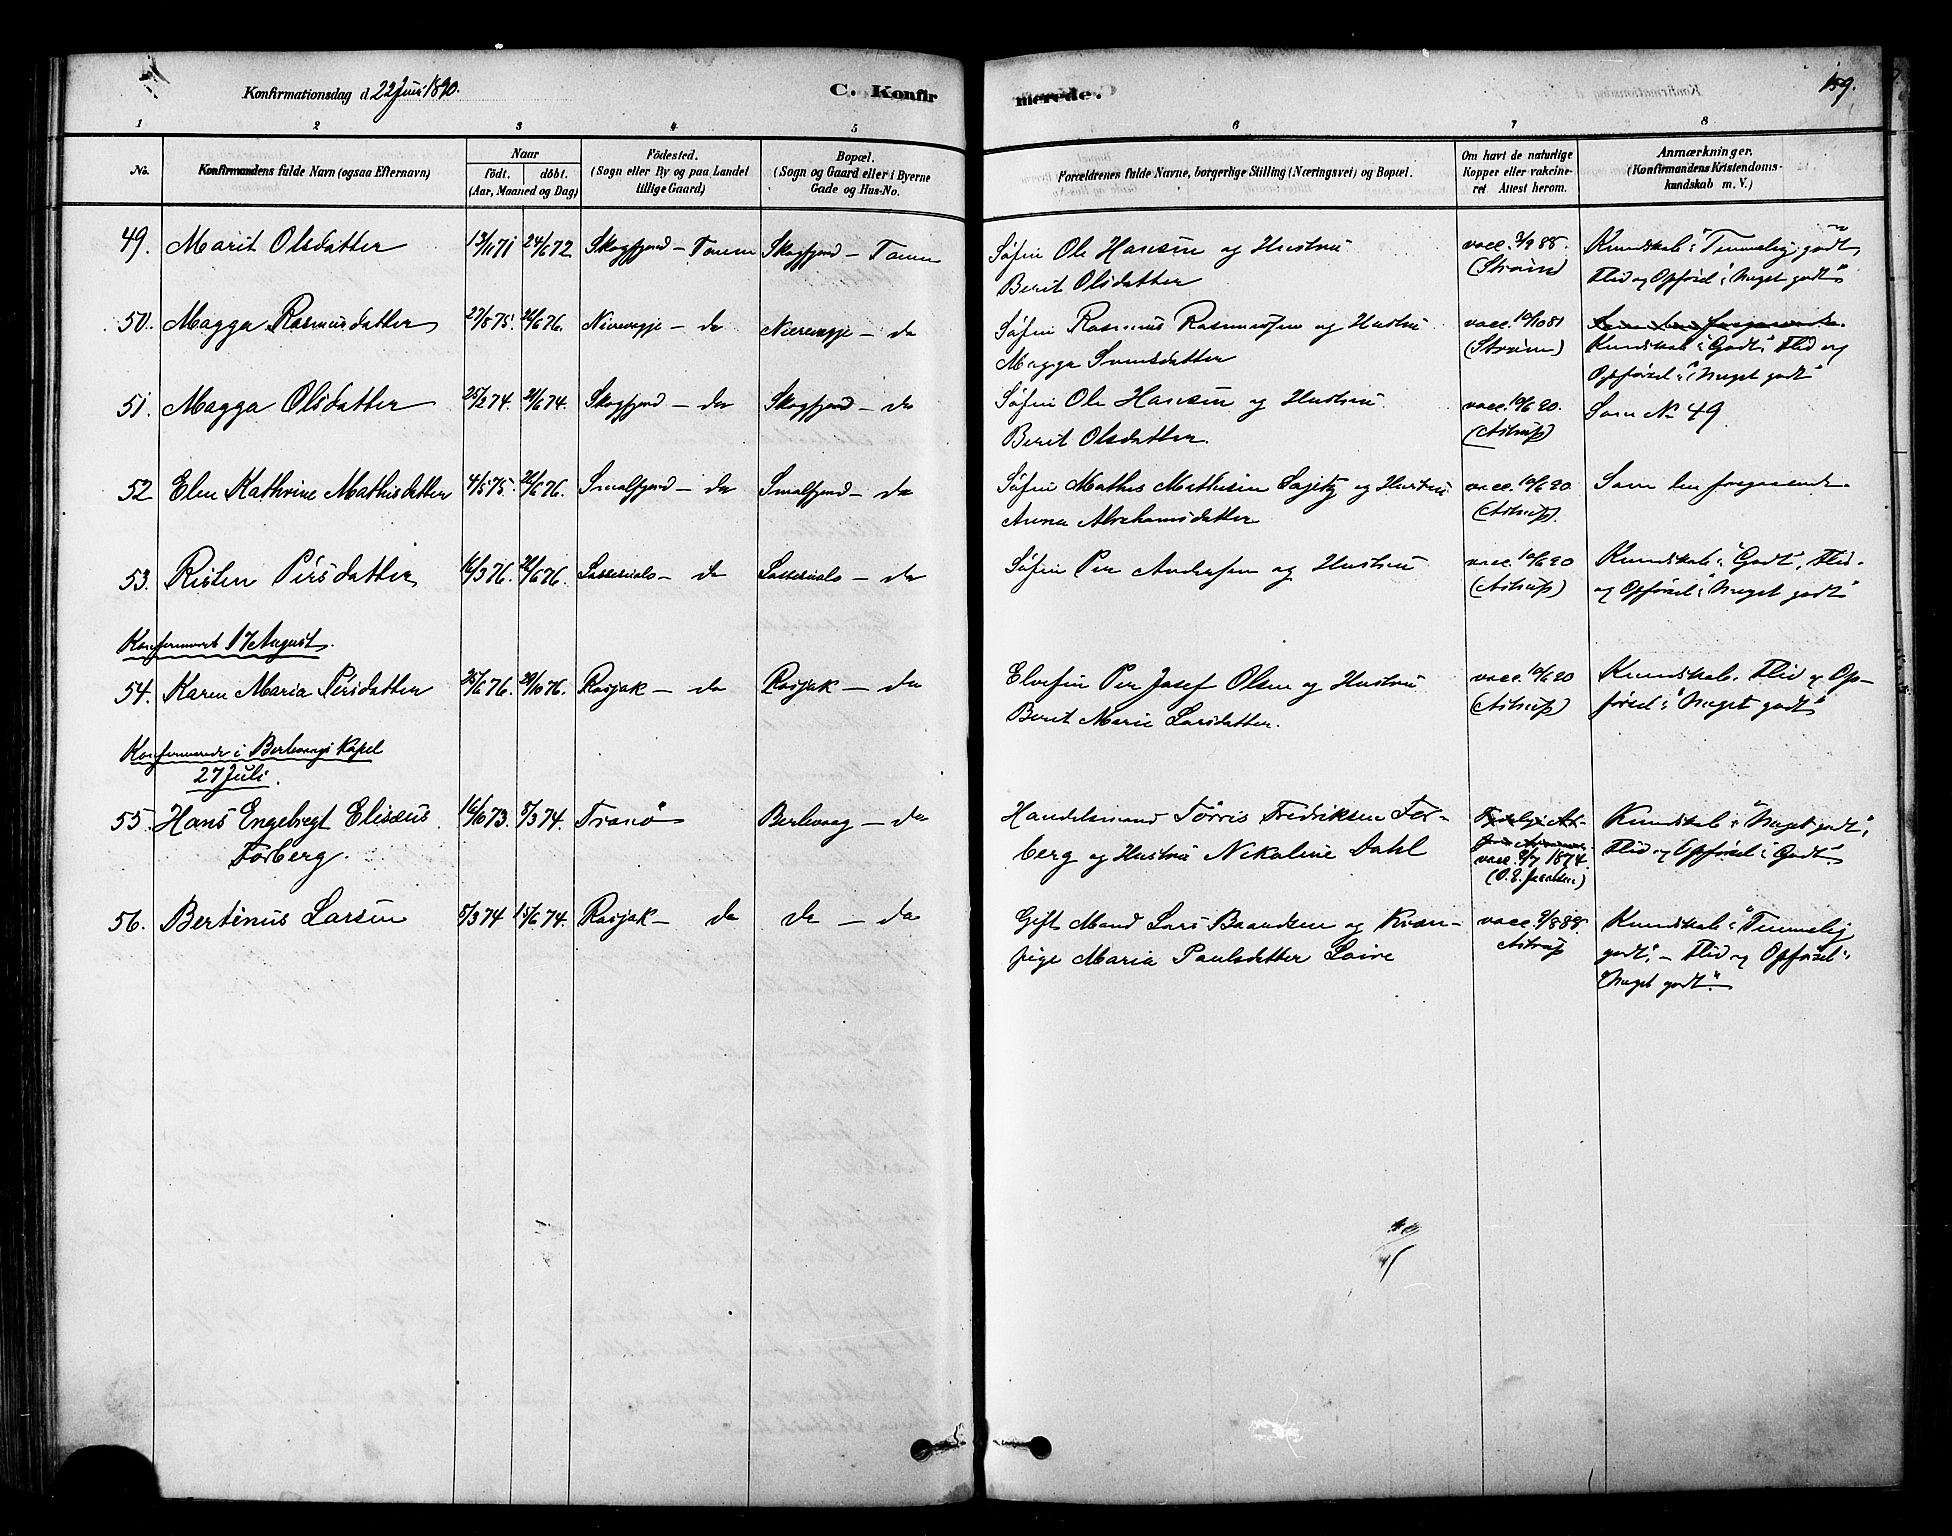 Konfirmationsdag d. 22 Juni 1890.
C. Konfir
merede.
159.
1 2 3 4 5 6 7 8
No.
Konfirmandens fulde Navn (ogsaa Efternavn)
Naar
født. døbt.
(Aar, Maaned og Dag)
Fødested.
(Sogn eller By og paa Landet
tillige Gaard)
Bopæl.
(Sogn og Gaard eller i Byerne
Gade og Hus-No.
Forældrenes fulde Navne, borgerlige Stilling (Næringsvei) og Bopæl.
Om havt de naturlige
Kopper eller vakcine-
ret Attest herom.
Anmærkninger.
(Konfirmandens Kristendoms-
kundskab m. V.)
49. Marit Olsdatter 13/11 71 24/6 72 Skogfjord – Tanen Skogfjord – Tanen Søfin Ole Hansen og Hustru vacc. 3/9 88. Kundskab: "Temmelig godt"
Berit Olsdatter (Strøm) Flid og Opførsel: "Meget godt"
50. Magga Rasmusdatter 27/8 75. 26/6 76. Nierevagje – do Nierevagje – do Søfin Rasmus Rasmussen og Hustru vacc. 10/10 81
Magga Svensdatter (Strøm) Kundskab: "Godt", Flid og
Opførsel: "Meget godt"
51. Magga Olsdatter 25/2 74. 21/6 74. Skogfjord – do Skogfjord – do Søfin Ole Hansen og Hustru vacc. 10/6 90. Som No 49
Berit Olsdatter. (Astrup)
52 Elen Kathrine Mathisdatter 4/5 75. 26/6 76. Smalfjord – do Smalfjord – do Søfin Mathis Mathisen Sajetz og Hustru vacc. 10/6 90 Som den foregaaende
Anna Abrahamsdatter (Astrup).
53. Risten Persdatter 16/3 76. 26/6 76. – do – do Søfin Per Andersen og Hustru vacc. 10/6 90 Kundskab: "Godt", Flid
(Astrup) og Opførsel: "Meget godt"
Konfirmeret 17 August.
54. Karen Maria Persdatter 25/6 76. 29/10 76. Rasjok – do Rasjok – do Elvefin Per Josef Olsen og Hustru vacc. 10/6 90 Kundskab, Flid og Op-
Berit Marie Larsdatter. (Astrup) førsel: "Meget godt"
Konfirmerede i Berlevaag Kapel
27 Juli.
55. Hans Engebregt Elisæus 16/10 73. 8/3 74. Tranø Berlevaag – do Handelsmand Tørris Fredriksen For- Kundskab: "Meget godt",
Forberg. berg og Hustru Nikoline Dahl vacc. 9/7 1874. Flid og Opførsel: "Godt"
(O. E. Jacobsen)
56. Bertinus Larsen 8/3 74 15/6 74. Rasjok – do do – do Gift Mand Lars Baardsen og Kvæn- vacc. 9/8 88. Kundskab: "Temmelig
pige Maria Paulsdatter Loive Astrup godt", – Flid og Opførsel:
"Meget godt".